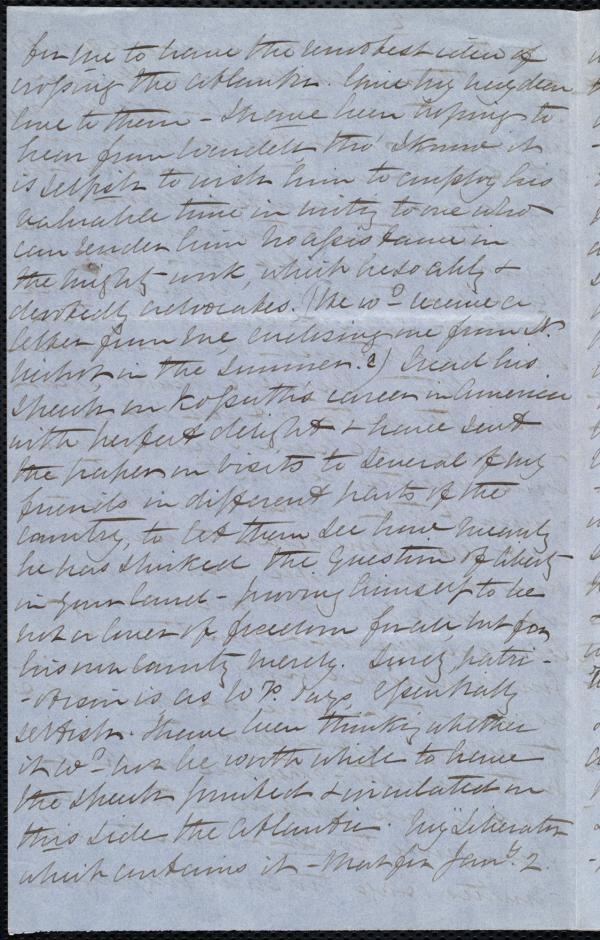 for me to have the remotest idea of
crossing the Atlantic. Give my very dear
love to them - I have been hoping to
hear from Wendell, tho' I know it
is selfish to wish him to employ his
valuable time in writg to one who
can render him no assistance in
the mighty work, which he so ably &
devotedly advocates. (He wd receive a
letter from me, enclosing one from
in the summer?) I read his
speech on Kossuth's career in America
with perfect delight & have sent
the paper on visits to several of my
friends in different parts of the
country, to let them see how meanly
he has shirked the question of liberty
in your land - proving himself to be
not a lover of freedom for all, but for
his own country merely. Surely patri-
-otism is as W. P. says, essentially
selfish. I have been thinkg whether
it wd not be worth while to have
the speech printed & circulated on
this side the Atlantic. My Liberator
which contains it - that for Jany. 2.